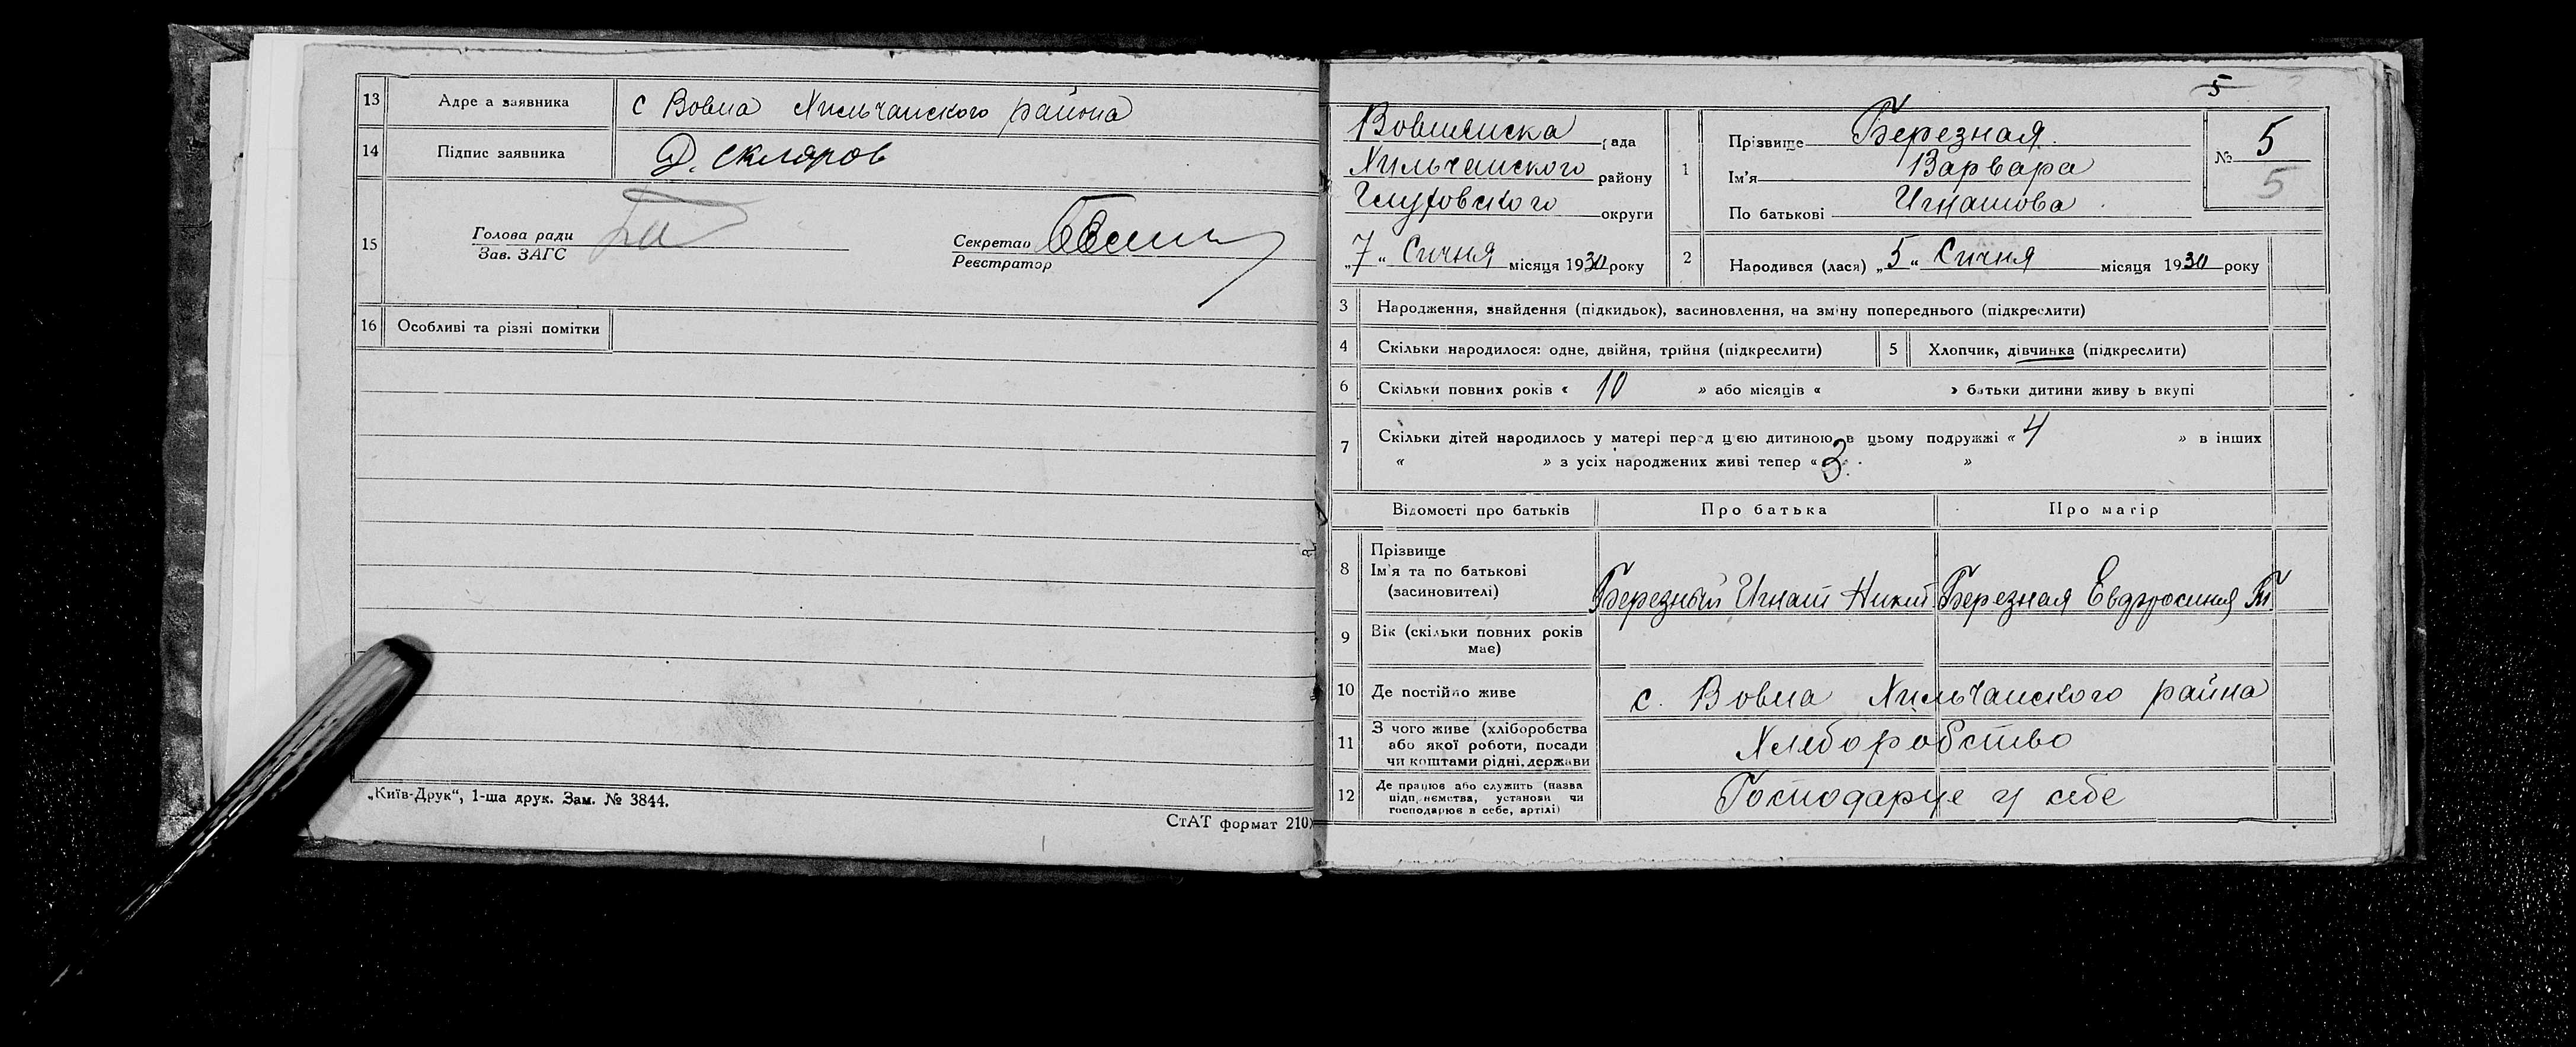 13 Адре а заявника с Вовна Хильчанского района
14 Підпис заявника Д. Скляров
15 Голова ради
Зав. ЗАГС
Секретар
Реєстратор
16 Особливі та різні помітки
„Київ-Друк“, 1-ша друк. Зам. № 3844.
СтАТ формат 210×
5
Вовненска рада
Хильчанского району
Глуховского округи
„7“ Січня місяця 1930 року
1 Прізвище Березная
Ім'я Варвара
По батькові Игнатова
№ 5
5
2 Народився (лася) „5“ Січня місяця 1930 року
3 Народження, знайдення (підкидьок), засиновлення, на зміну попереднього (підкреслити)
4 Скільки народилося: одне, двійня, трійня (підкреслити)
5 Хлопчик, дівчинка (підкреслити)
6 Скільки повних років « 10 » або місяців « » батьки дитини живу ь вкупі
7 Скільки дітей народилось у матері перед цією дитиною в цьому подружжі « 4 » в інших
« » з усіх народжених живі тепер « 3 »
Відомості про батьків Про батька Про матір
8 Прізвище
Ім'я та по батькові
(засиновителі)
Березный Игнат Никит Березная Евдросиния
9 Вік (скільки повних років
має)
10 Де постійно живе с. Вовна Хильчанского района
11 З чого живе (хліборобства
або якої роботи, посади
чи коштами рідні, держави
Хлеборобство
12 Де працює або служить (назва
підп. иємства, установи чи
господарює в себе, артілі)
Господарує у себе